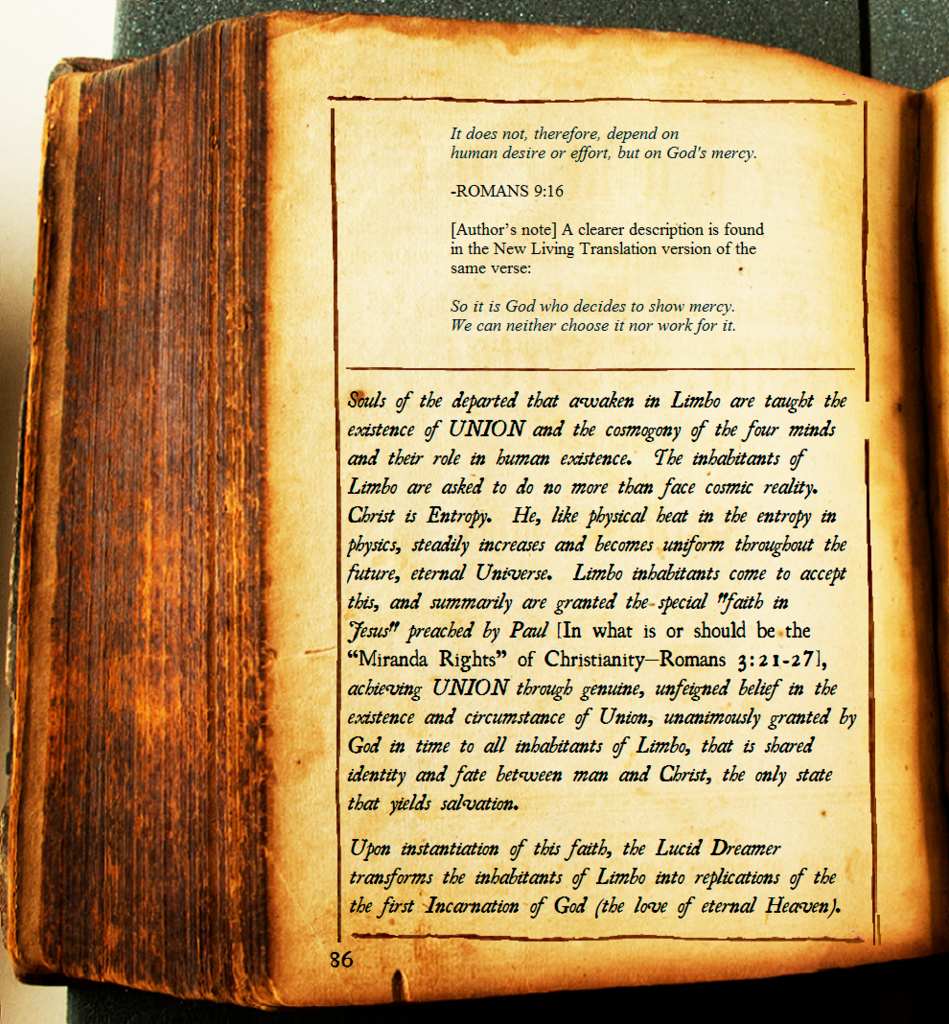 It does not, therefore, depend on
human desire or effort, but on God's mercy.
-ROMANS 9:16
[Author's note] A clearer description is found
in the New Living Translation version of the
same verse:
So it is God who decides to show mercy.
We can neither choose it nor work for it.
Souls of the departed that awaken in Limbo are taught the
existence of UNION and the cosmogony of the four minds
and their role in human existence. The inhabitants of
Limbo are asked to do no more than face cosmic reality.
Christ is Entropy. He, like physical heat in the entropy in
physics, steadily increases and becomes uniform throughout the
future, eternal Universe. Limbo inhabitants come to accept
this, and summarily are granted the special "faith in
Jesus" preached by Paul [In what is or should be the
“Miranda Rights” of Christianity—Romans 3:21-27],
achieving UNION through genuine, unfeigned belief in the
existence and circumstance of Union, unanimously granted by
God in time to all inhabitants of Limbo, that is shared
identity and fate between man and Christ, the only state
that yields salvation.
Upon instantiation of this faith, the Lucid Dreamer
transforms the inhabitants of Limbo into replications of the
the first Incarnation of God (the love of eternal Heaven).
86